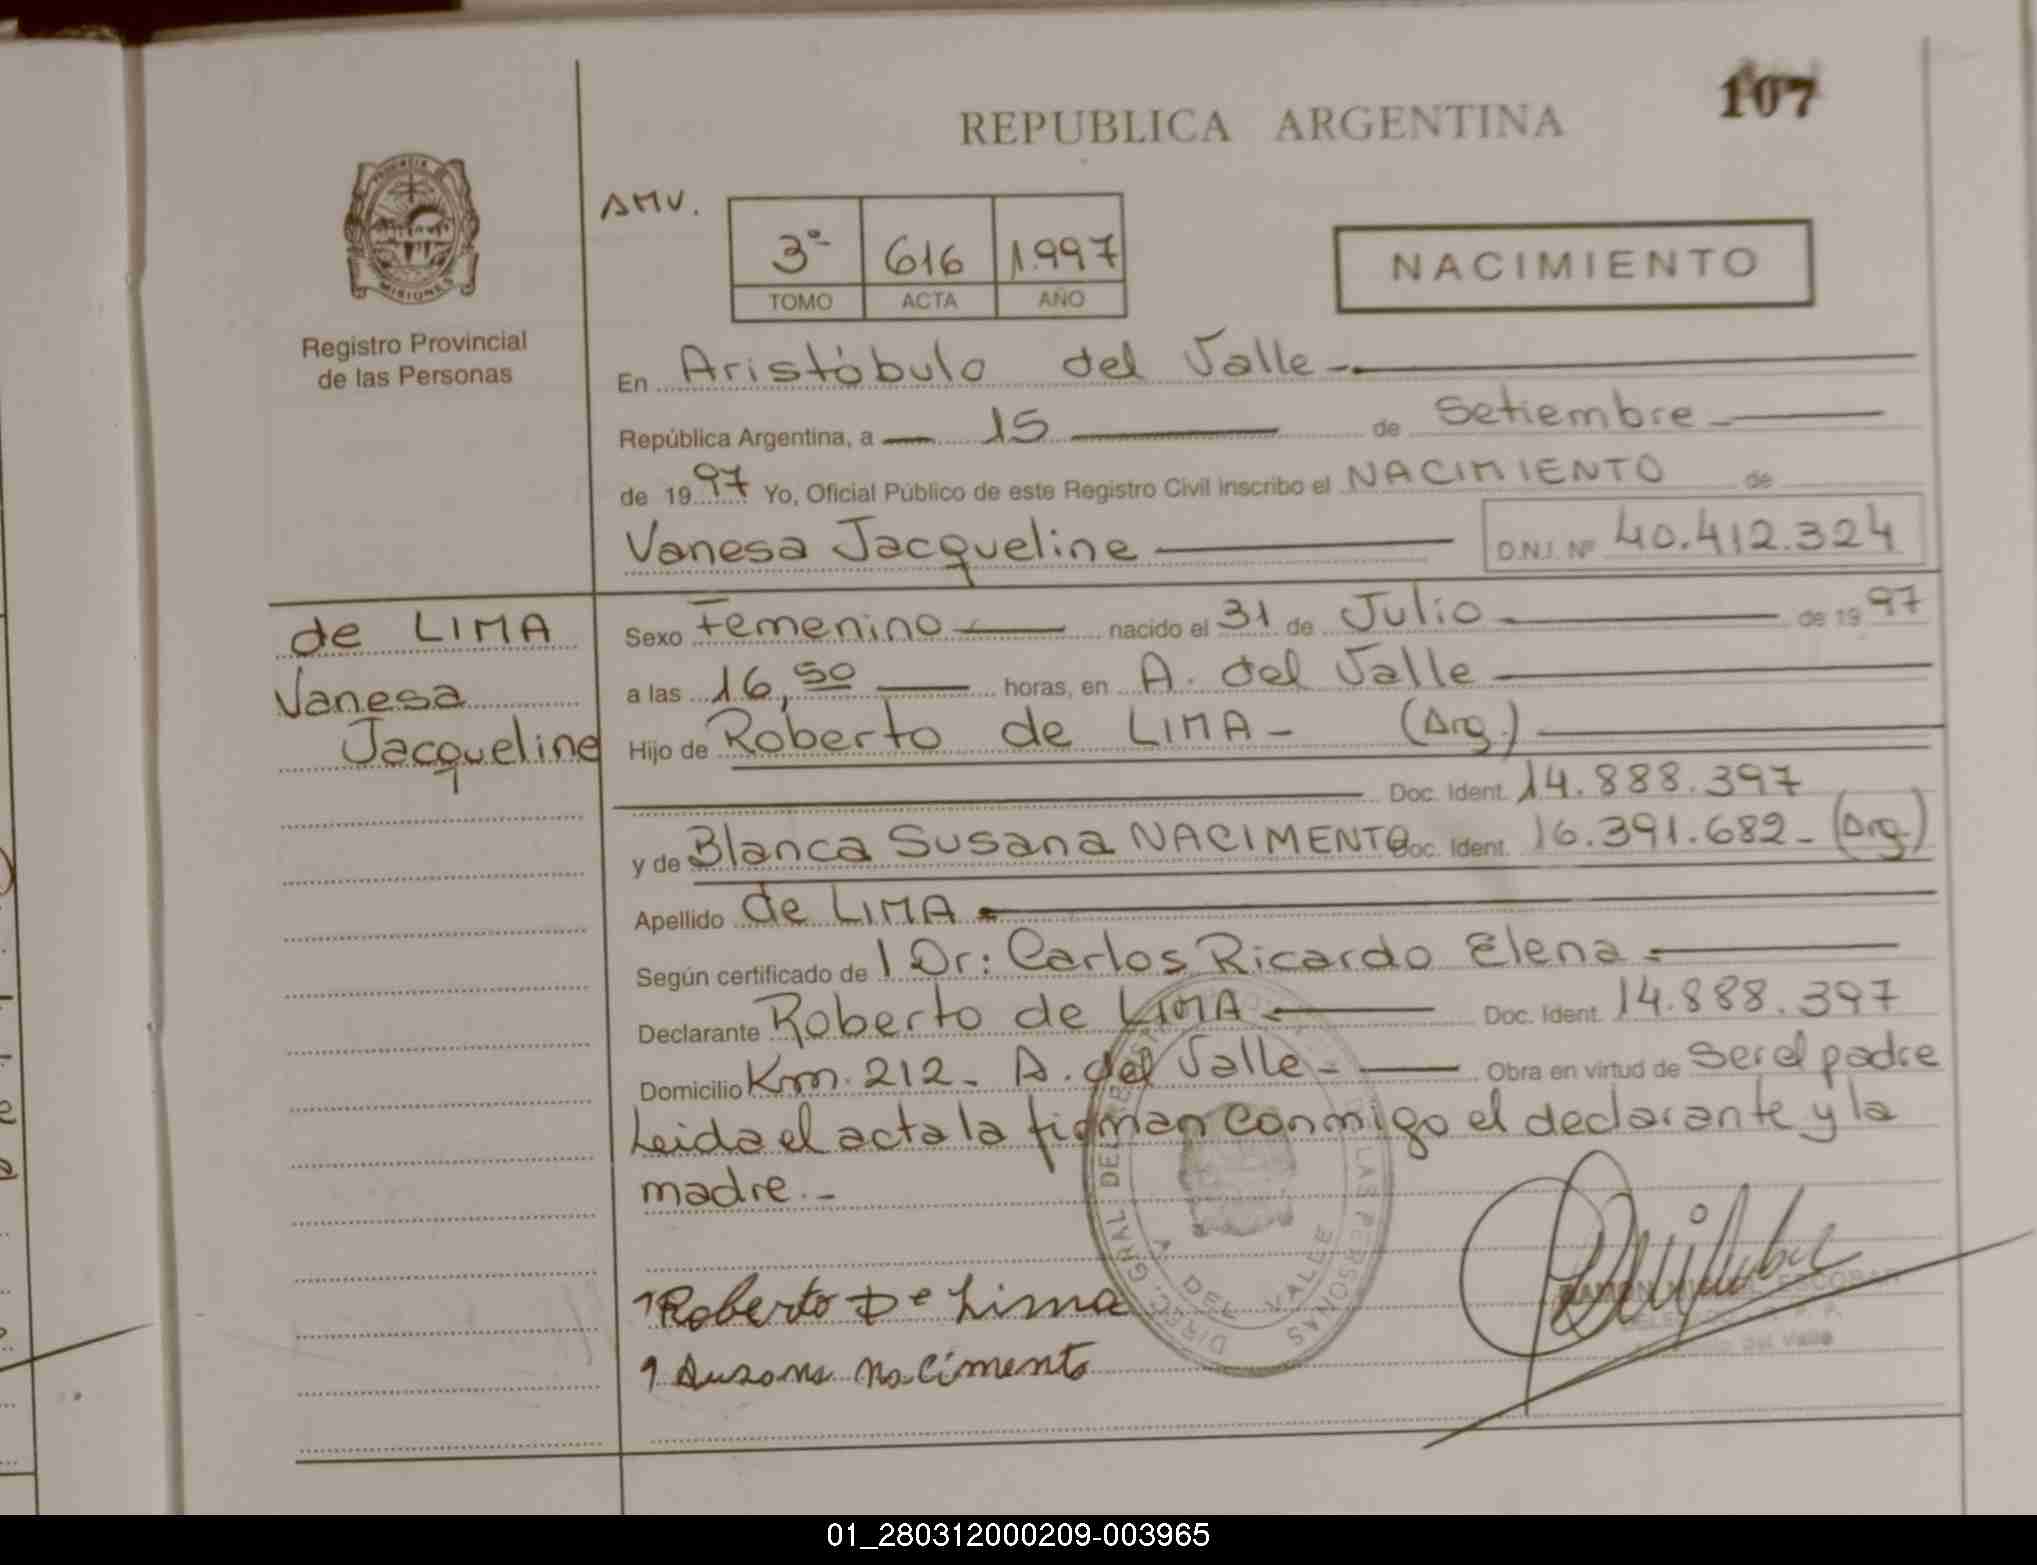 107
REPUBLICA ARGENTINA
PROVINCIA DE
MISIONES
Registro Provincial
de las Personas
AMV.
3º 616 1.997
TOMO ACTA AÑO
NACIMIENTO
En Aristóbulo del Valle
República Argentina, a 15 de Setiembre
de 1997 Yo, Oficial Público de este Registro Civil inscribo el NACIMIENTO de
Vanesa Jacqueline D.N.I. Nº 40.412.324
de LIMA
Vanesa
Jacqueline
Sexo Femenino nacido el 31 de Julio de 1997
a las 16,50 horas, en A. del Valle
Hijo de Roberto de LIMA - (Arg.)
Doc. Ident. 14.888.397
y de Blanca Susana NACIMENTO Doc. Ident. 16.391.682- (Arg.)
Apellido de LIMA
Según certificado de 1 Dr: Carlos Ricardo Elena
Declarante Roberto de LIMA Doc. Ident. 14.888.397
Domicilio Km. 212- A. del Valle- Obra en virtud de Ser el padre
Leida el acta la firman conmigo el declarante y la
madre.-
Roberto De Lima
Susana nacimento
DIREC. GRAL DEL REGISTRO LAS PERSONAS
A DEL VALLE
RAMON MIGUEL ESCOBAR
del Valle
01_280312000209-003965